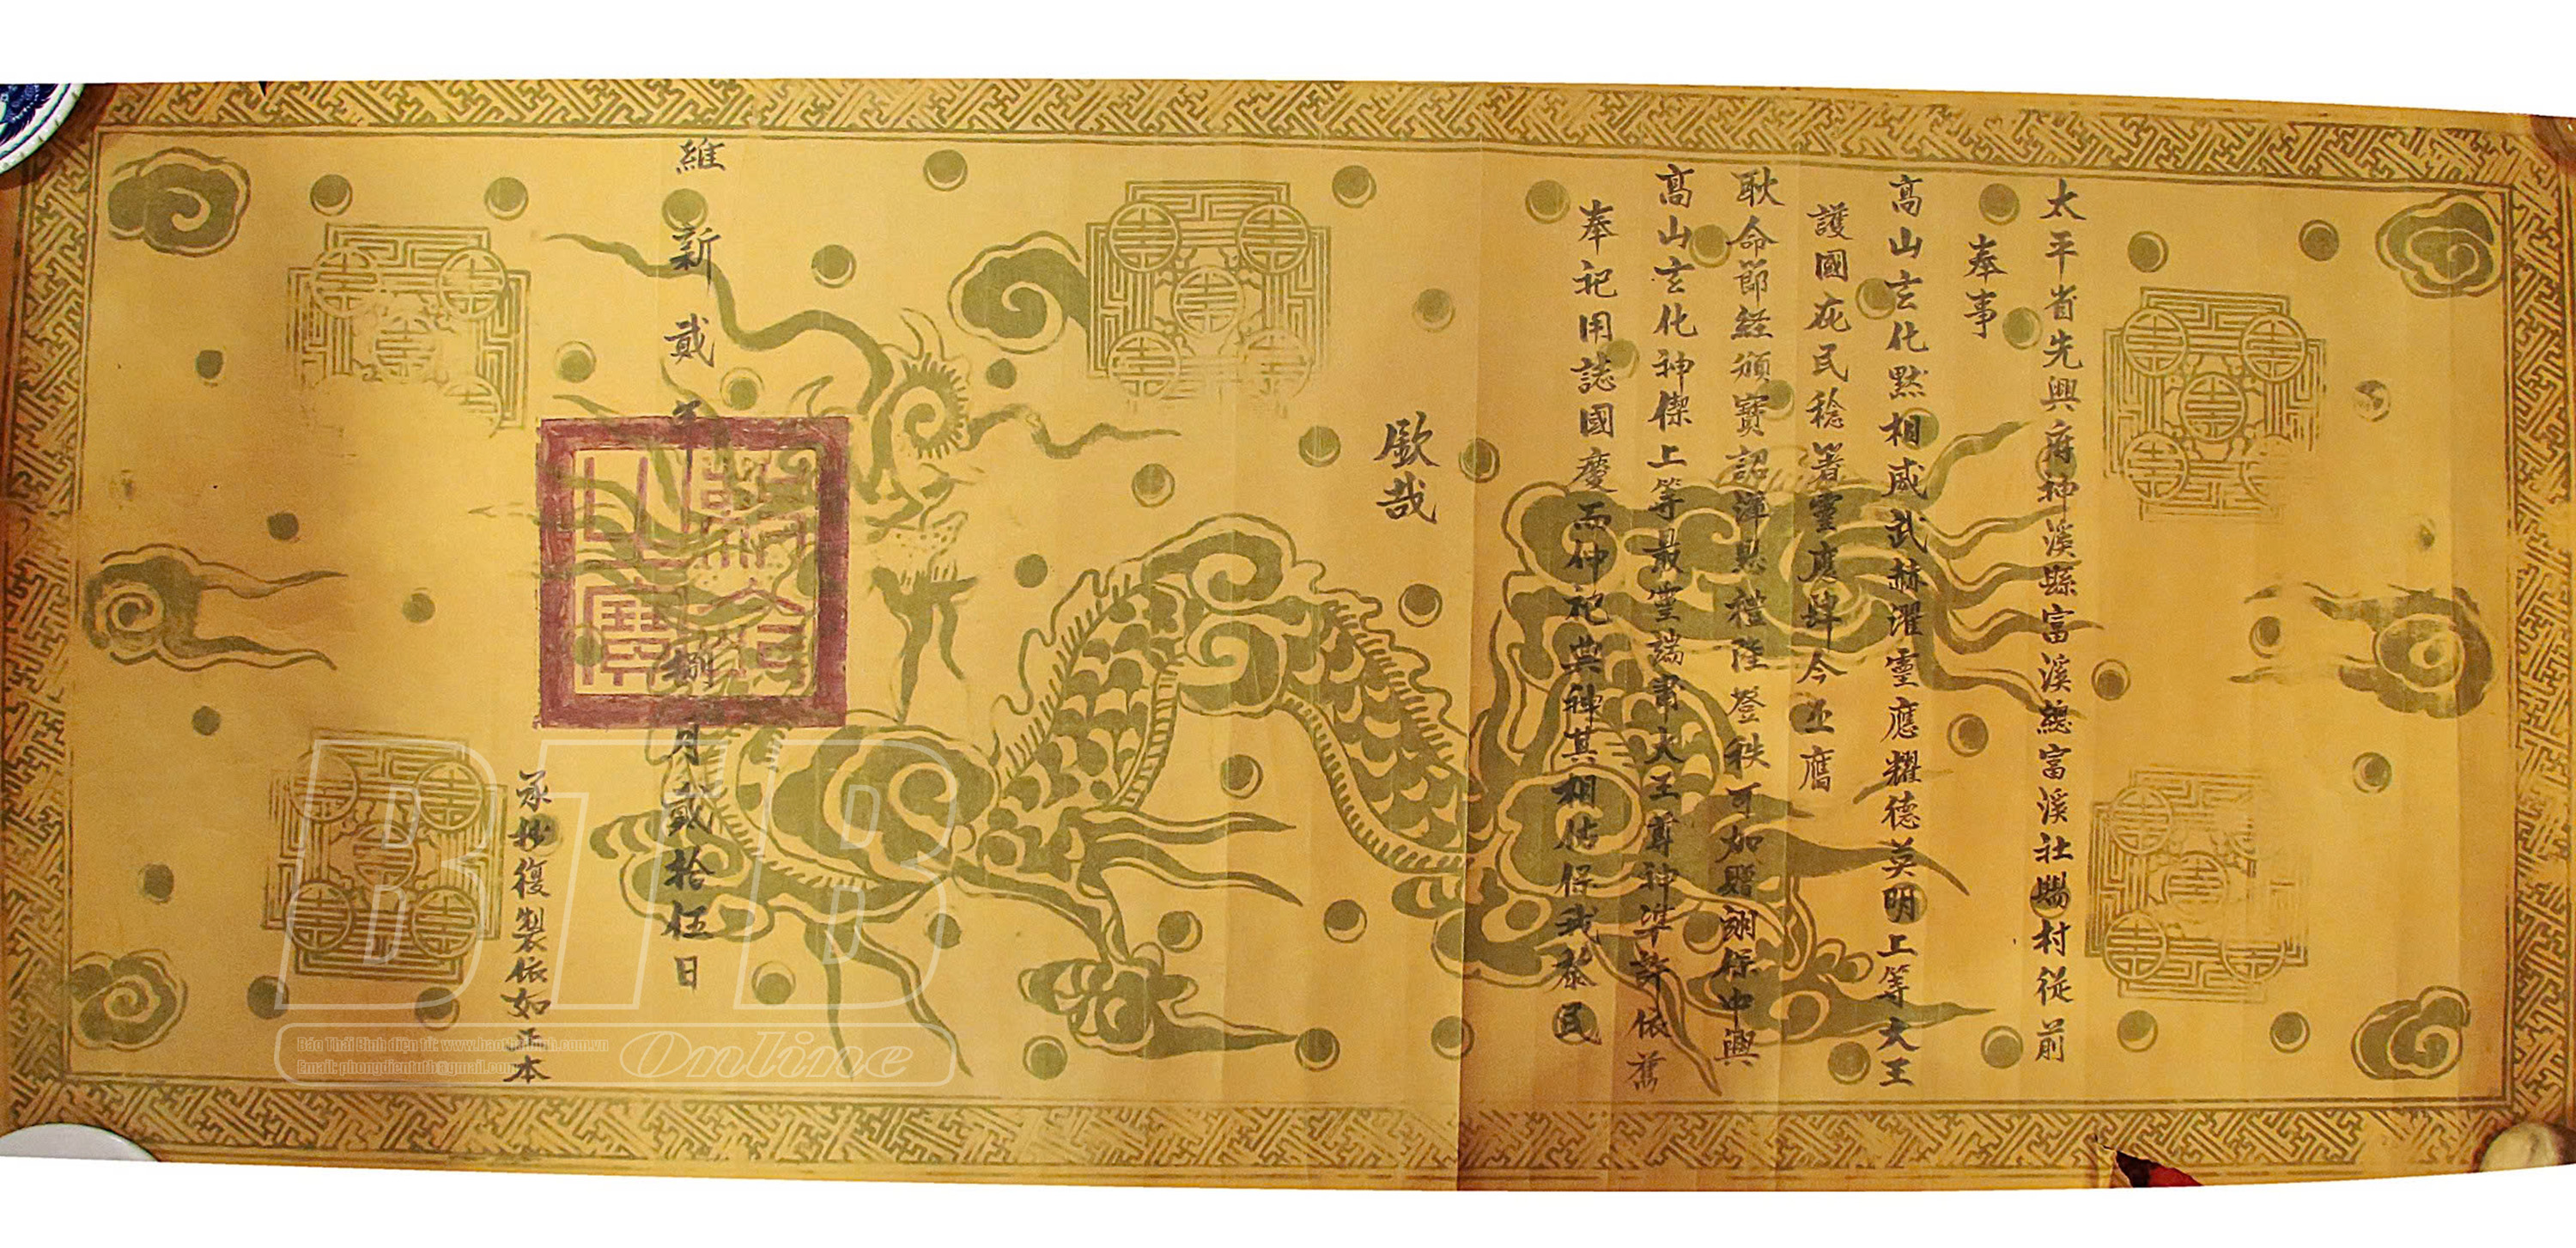 太平省先興府神溪縣富溪總富溪社賜村從前
奉事
高山玄化黙相威武赫濯靈應耀德英明上等大王
護國庇民稔著靈應肆今丕膺
耿命節經頒寶詔潭恩禮陞登秩可加贈翊保中興
高山玄化神傑上等最靈端肅大王尊神準許依舊
奉祀用誌國慶而伸祀典神其相佑保我黎民
欽哉
維新貳年捌月貳拾伍日
承抄復製依如正本
敕命之寶
BTB
Online
Báo Thái Bình điện tử: www.baothaibinh.com.vn
Email: phongdientuth@gmail.com